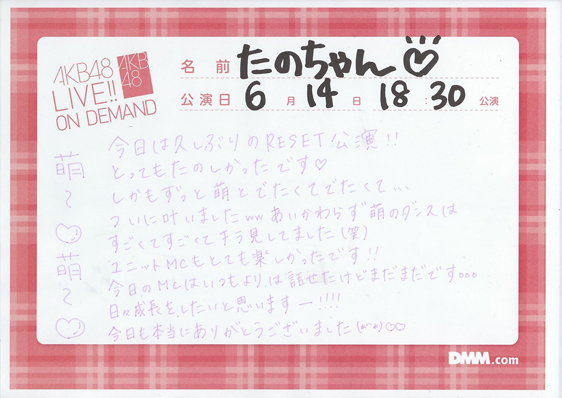 AKB48
LIVE!!
ON DEMAND
AKB
48
名前 たのちゃん♡
公演日 6月14日 18:30公演
今日は久しぶりのRESET公演!!
とってもたのしかったです♡
しかもずっと萌とでたくてでたくて...
ついに叶いましたwwあいかわらず萌のダンスは
すごくてすごくてチラ見してました(笑)
ユニットMCもとても楽しかったです!!
今日のMCはいつもよりは話せたけどまだまだです。。。
日々成長をしたいと思いますー!!!!
今日も本当にありがとうございました
萌
~
♡
萌
~
♡
DMM.com